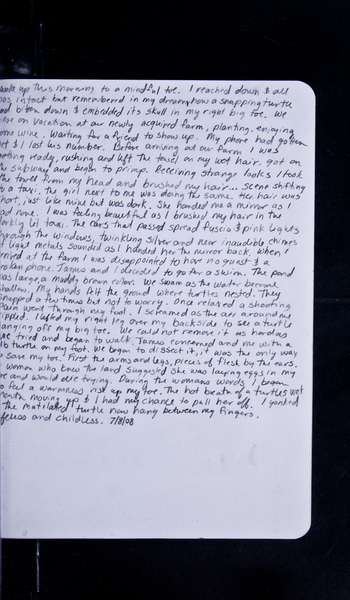 woke up this morning to a mindful toe. I reached down & all
was intact but remembered in my dream how a snapping turtle
had bitten down & embedded its skull in my right big toe. We
were on vacation at our newly acquired farm, planting, enjoying
some wine. Waiting for a friend to show up. My phone had gotten
wet & I lost his number. Before arriving at our farm I was
getting ready, rushing and left the towel on my wet hair. got on
the subway and began to primp. Receiving strange looks I took
the towel from my head and brushed my hair... scene shifting
to a taxi. The girl next to me was doing the same. Her hair was
short, just like mine but was dark. She handed me a mirror as I
had none. I was feeling beautiful as I brushed my hair in the
darkly lit taxi. The cars that passed spread fuscia & pink lights
through the windows, twinkling silver and near inaudible chimes
of light metals sounded as I handed her the mirror back. When
arrived at the farm I was disappointed to have no guest & a
broken phone. James and I decided to go for a swim. The pond
was large, a muddy brown color. We swam as the water became
shallow. My hands felt the ground where turtles nested. They
snapped a few times but not to worry. Once relaxed a shooting
pain went through my foot. I screamed as the air around me
ripped. I lifted my right leg over my backside to see a turtle
hanging off my big toe. We could not remove it as hard as
we tried and began to walk. James concerned and me with a
lb turtle on my foot. We began to dissect it, it was the only way
to save my toe. First the arms and legs, pieces of flesh by the ears.
A woman who knew the land suggested she was laying eggs in my
toe and would die trying. During the womans words I began
to feel a warmness rish up my toe. The hot breath of a turtles wet
mouth moving up & I had my chance to pull her off. I yanked
& the mutilated turtle now hang between my fingers,
lifeless and childless. 7/8/08